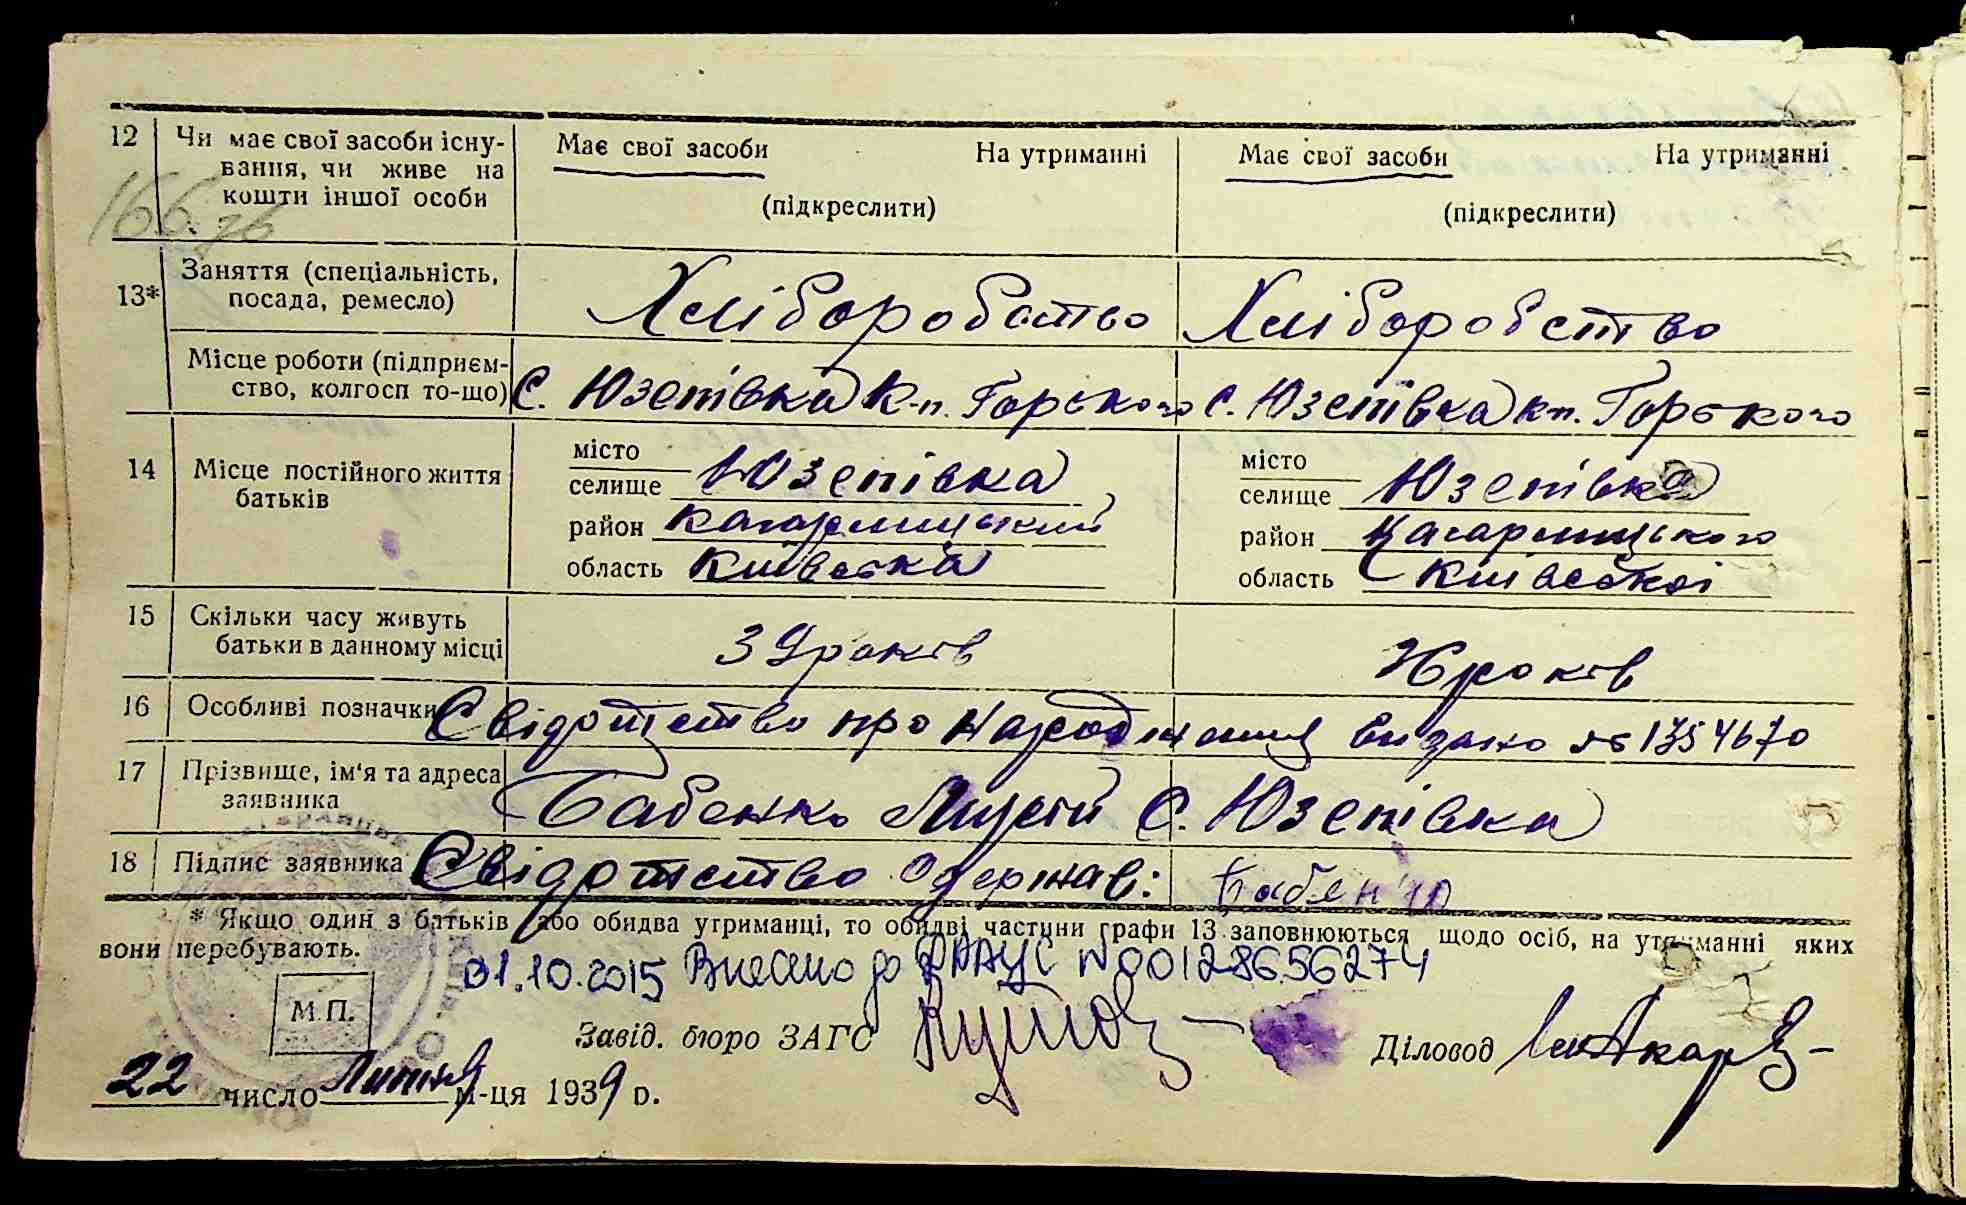 12 Чи має свої засоби існу-
вання, чи живе на
кошти іншої особи
Має свої засоби На утриманні
(підкреслити)
Має свої засоби На утриманні
(підкреслити)
13* Заняття (спеціальність,
посада, ремесло)
Хліборобство Хліборобство
Місце роботи (підприєм-
ство, колгосп то-що)
С. Юзепівка к-п. Горького с. Юзепівка кп. Горького
14 Місце постійного життя
батьків
місто
селище Юзепівка
район Кагарлицький
область Київська
місто
селище Юзепівка
район Кагарлицького
область Київської
15 Скільки часу живуть
батьки в данному місці
років років
16 Особливі позначки Свідотцтво про народження видано № 1354670
17 Прізвище, ім'я та адреса
заявника
Бабенко С. Юзепівка
18 Підпис заявника Свідотство одержав: Бабенко
* Якщо один з батьків або обидва утриманці, то обидві частини графи 13 заповнюються щодо осіб, на утриманні яких
вони перебувають.
01.10.2015 Внесено до ДРАЦС N 00128656274
М.П.
Завід. бюро ЗАГС Діловод
22 число Липня м-ця 1939 р.